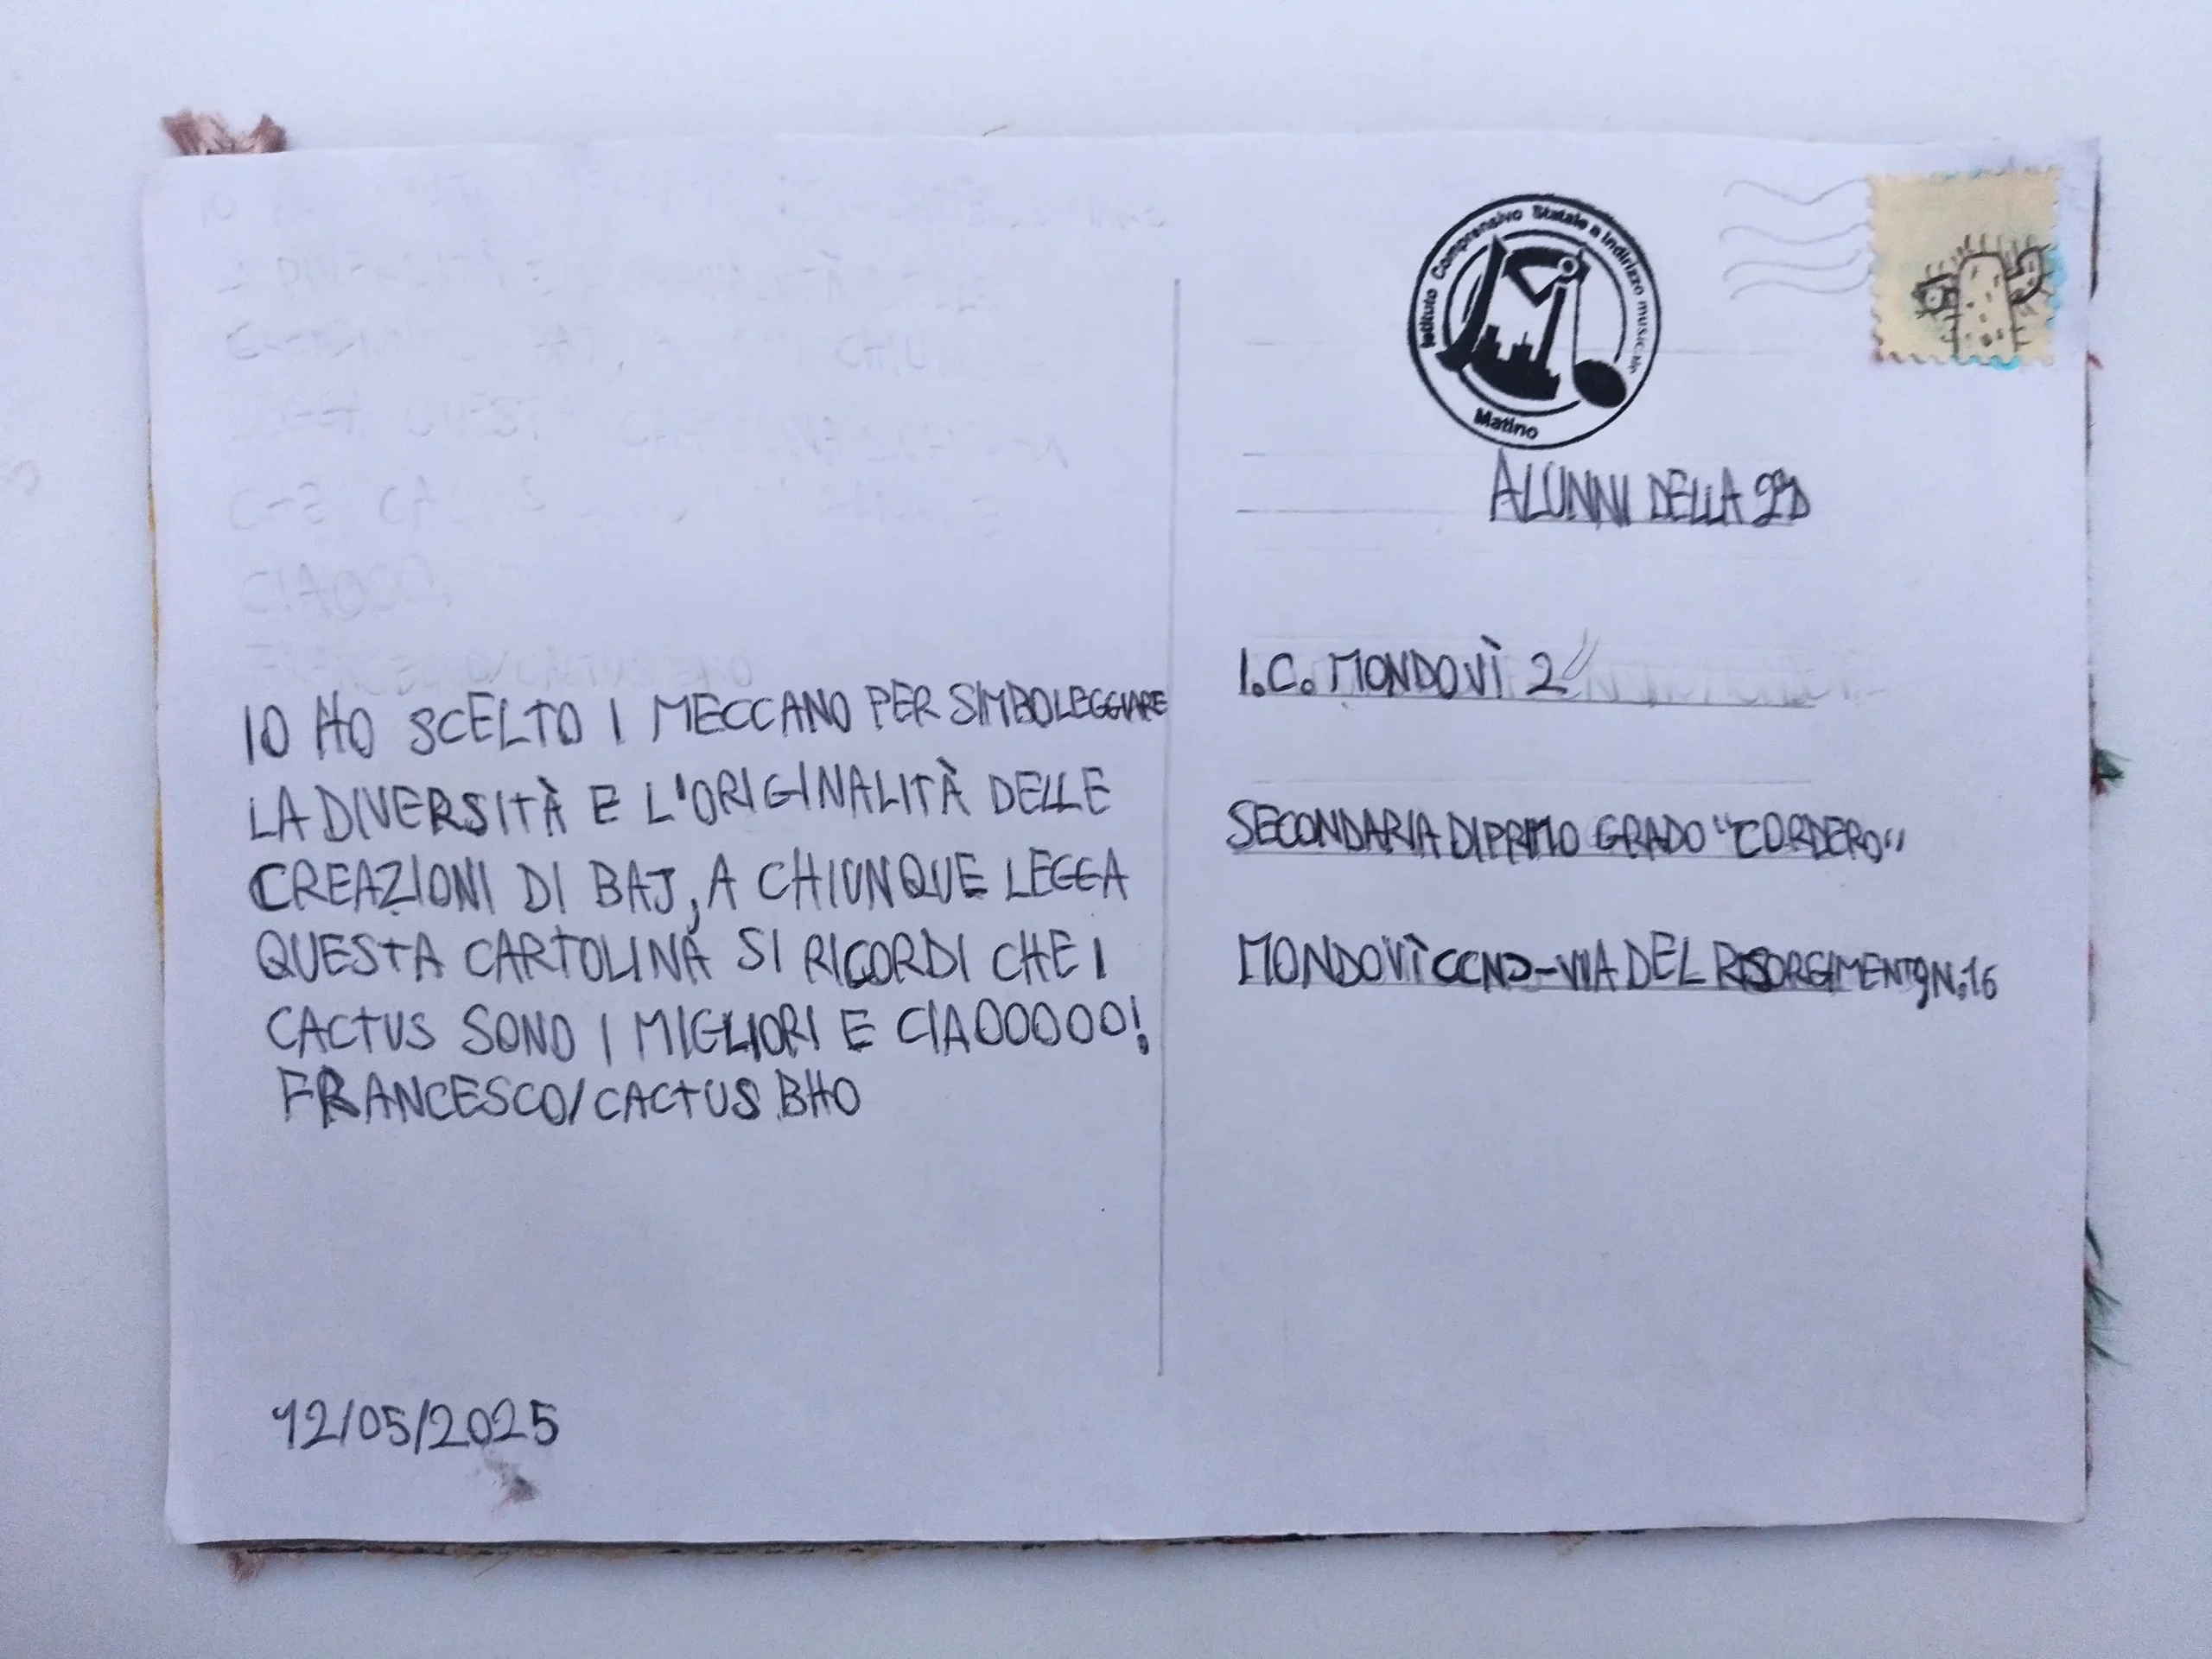 IO HO SCELTO I MECCANO PER SIMBOLEGGIARE
LA DIVERSITÀ E L'ORIGINALITÀ DELLE
CREAZIONI DI BAJ, A CHIUNQUE LEGGA
QUESTA CARTOLINA SI RICORDI CHE I
CACTUS SONO I MIGLIORI E CIAOOOOO!
FRANCESCO/CACTUS BHO
12/05/2025
Istituto Comprensivo Statale a Indirizzo musicale
Matino
ALUNNI DELLA 2ªD
I.C. MONDOVÌ 2
SECONDARIA DI PRIMO GRADO "CORDERO"
MONDOVÌ CCN)-VIA DEL RISORGIMENTO N.16